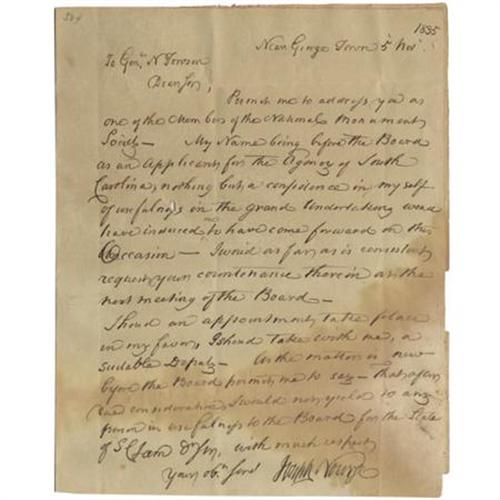 1835
Near George Town 5 Nov.
To Genl. N Towson
Dear Sir,
Permit me to address you as
one of the Members of the National Monument
Society — My Name being before the Board
as an Applicant for the Agency of South
Carolina, nothing but a confidence in my self
of usefulness in the grand Undertaking would
have induced me to have come forward on this
Occasion — I would as far as is consistent
request your countenance therein at the
next meeting of the Board —
Should an appointment take place
in my favor, I should take with me, a
suitable Deputy — As the matter is now
before the Board permit me to say — that, after
due consideration, I would not yield to any
person in usefulness to the Board for the State
of S C I am Dr Sir, with much respect
Your obt. Servt. Joseph Nourse